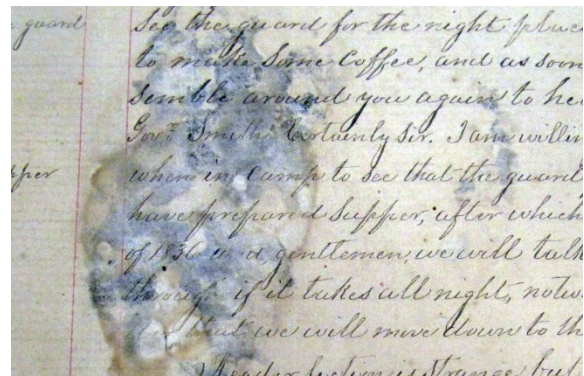 guard
See the guard for the night place
to make some coffee, and as soon
semble around you again to he
Govr. Smith Certainly Sir. I am willin
pper
when in camp to see that the guard
have prepared Supper, after which
of 1836 gentlemen we will talk
through if it takes all night, notw
that we will move down to th
Reader fiction is strange but